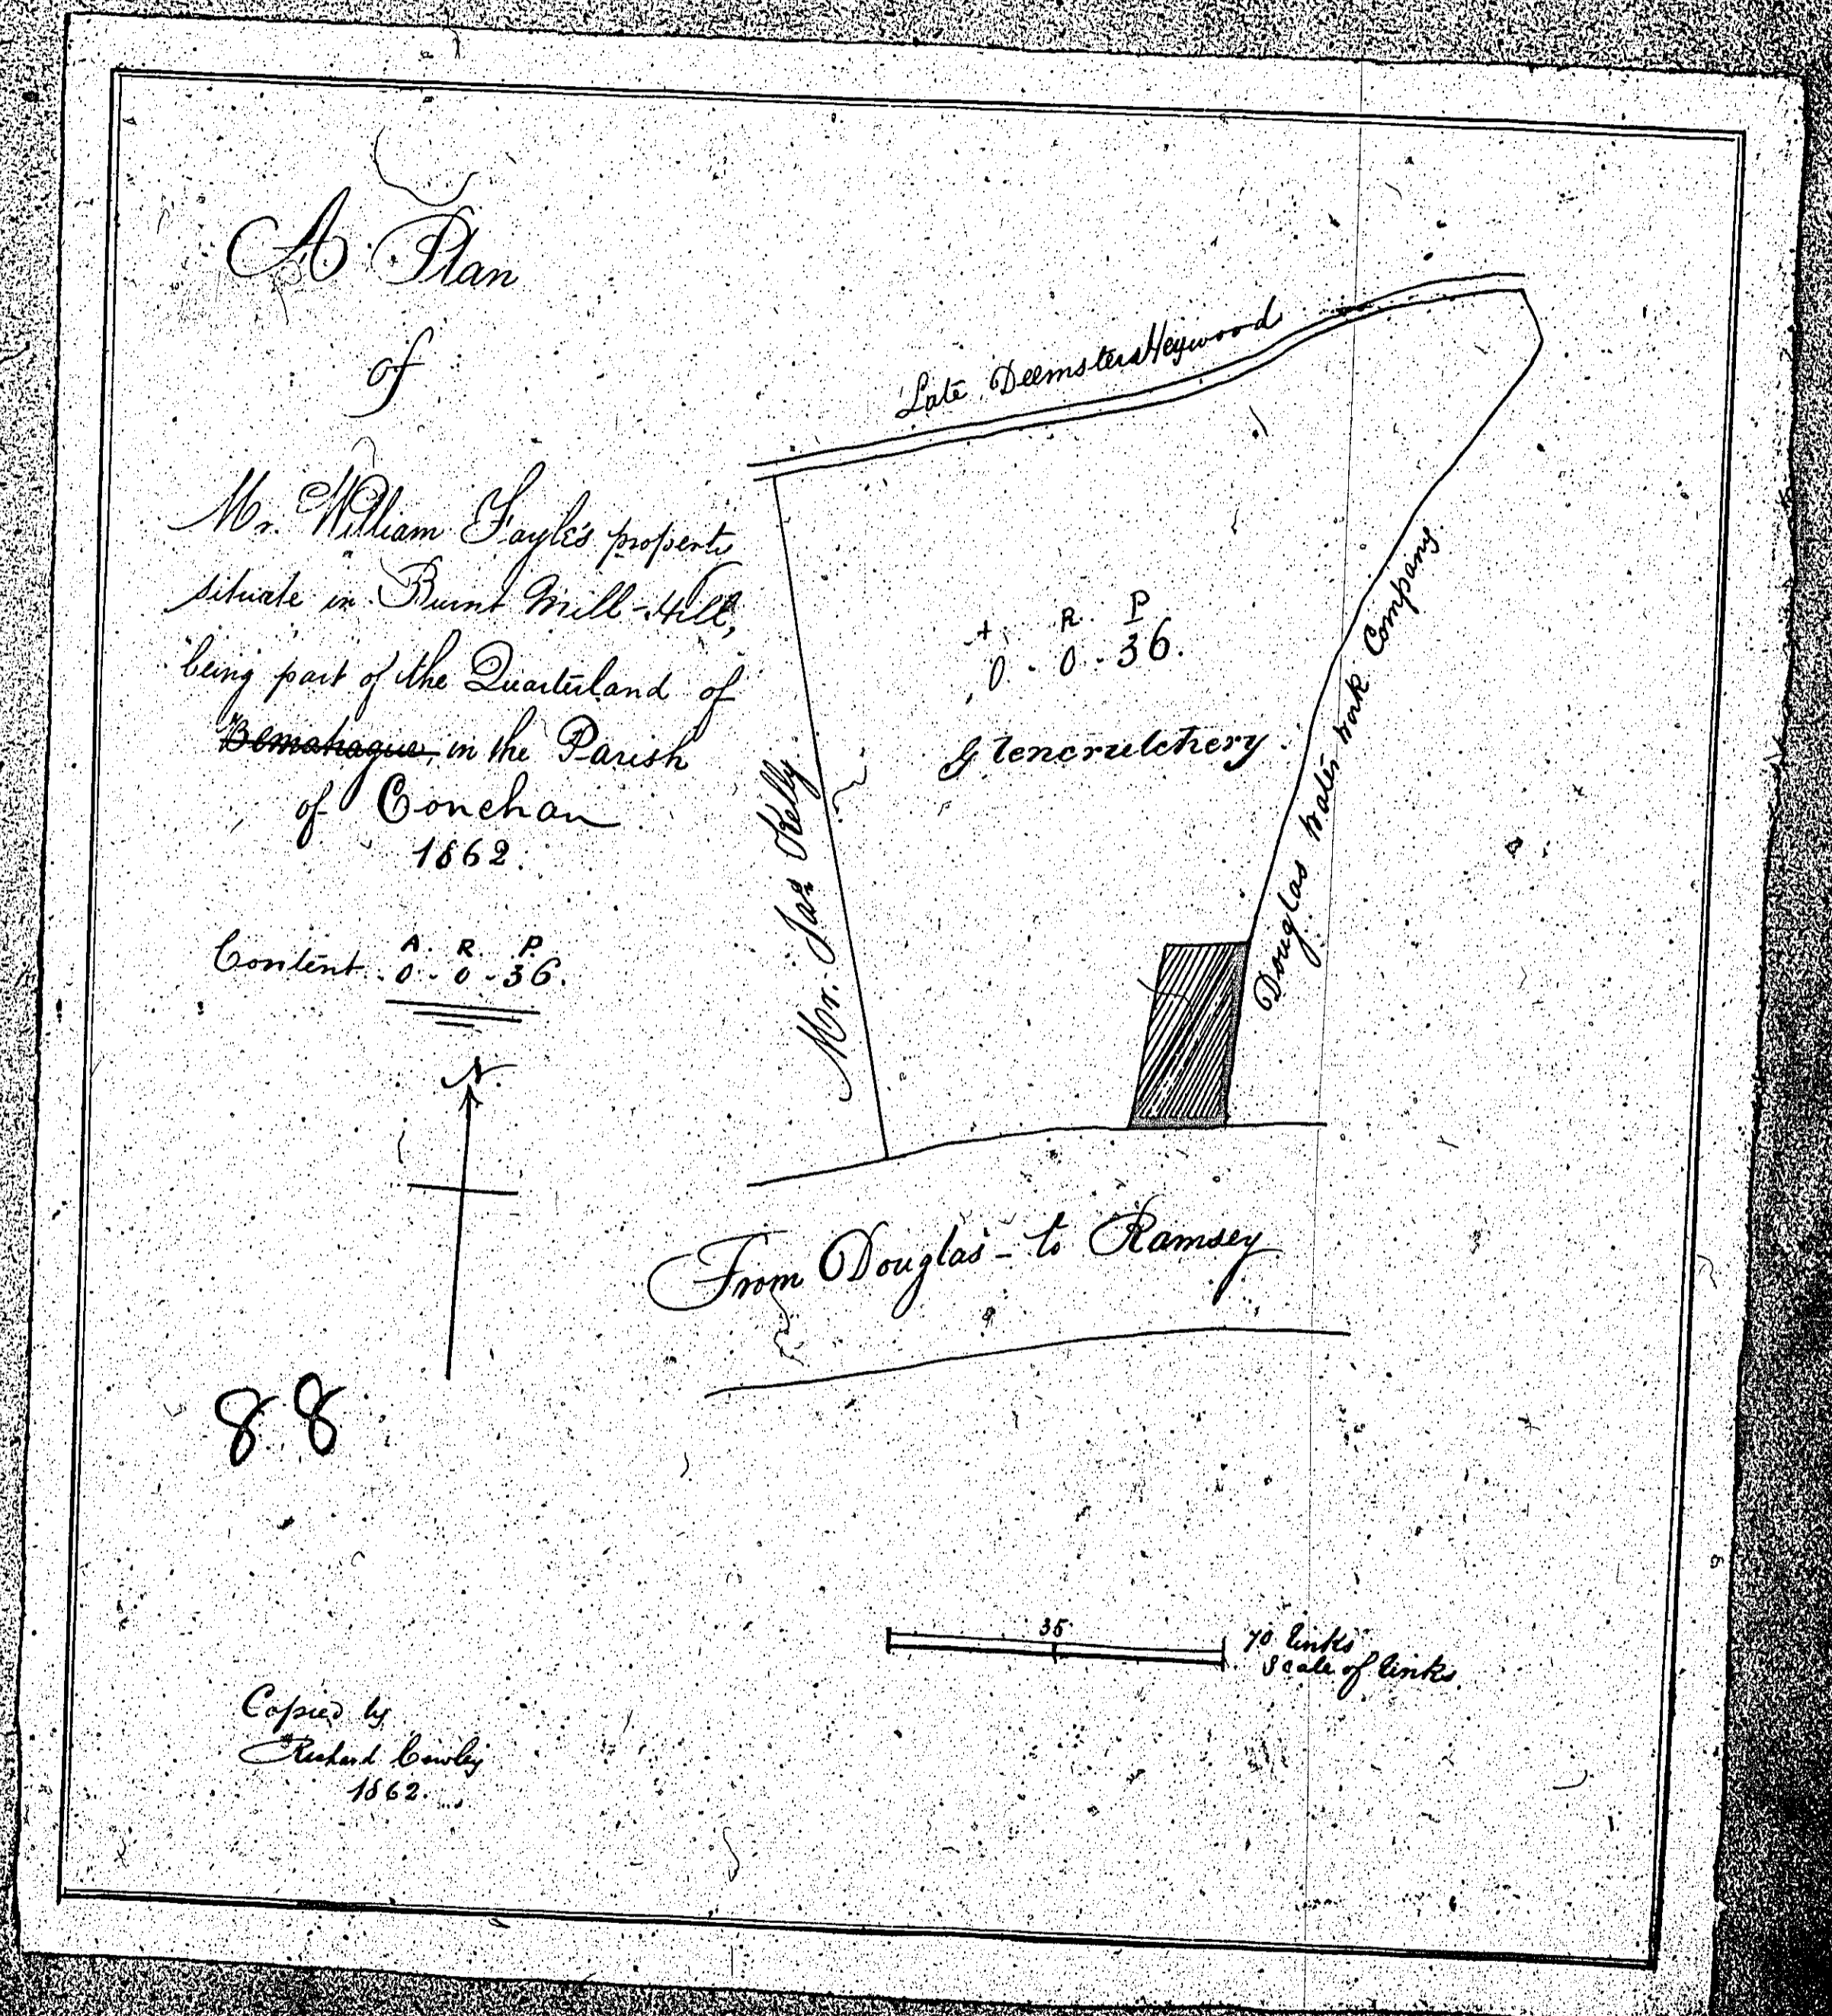 A Plan
of
Mr. William Fayle's property
situate in Burnt Mill-Hill,
being part of the Quarterland of
Bemahague, in the Parish
of Conchan
1862.
Content A. R. P.
0 - 0 - 36.
N.
88
Late Deemster Heywood
A. R. P
0 - 0 - 36.
Glencrutchery
Mr. Jas Kelly
Douglas Water Work Company
From Douglas - to Ramsey
35
70 links
Scale of links.
Copied by
Richard Cowley
1862.